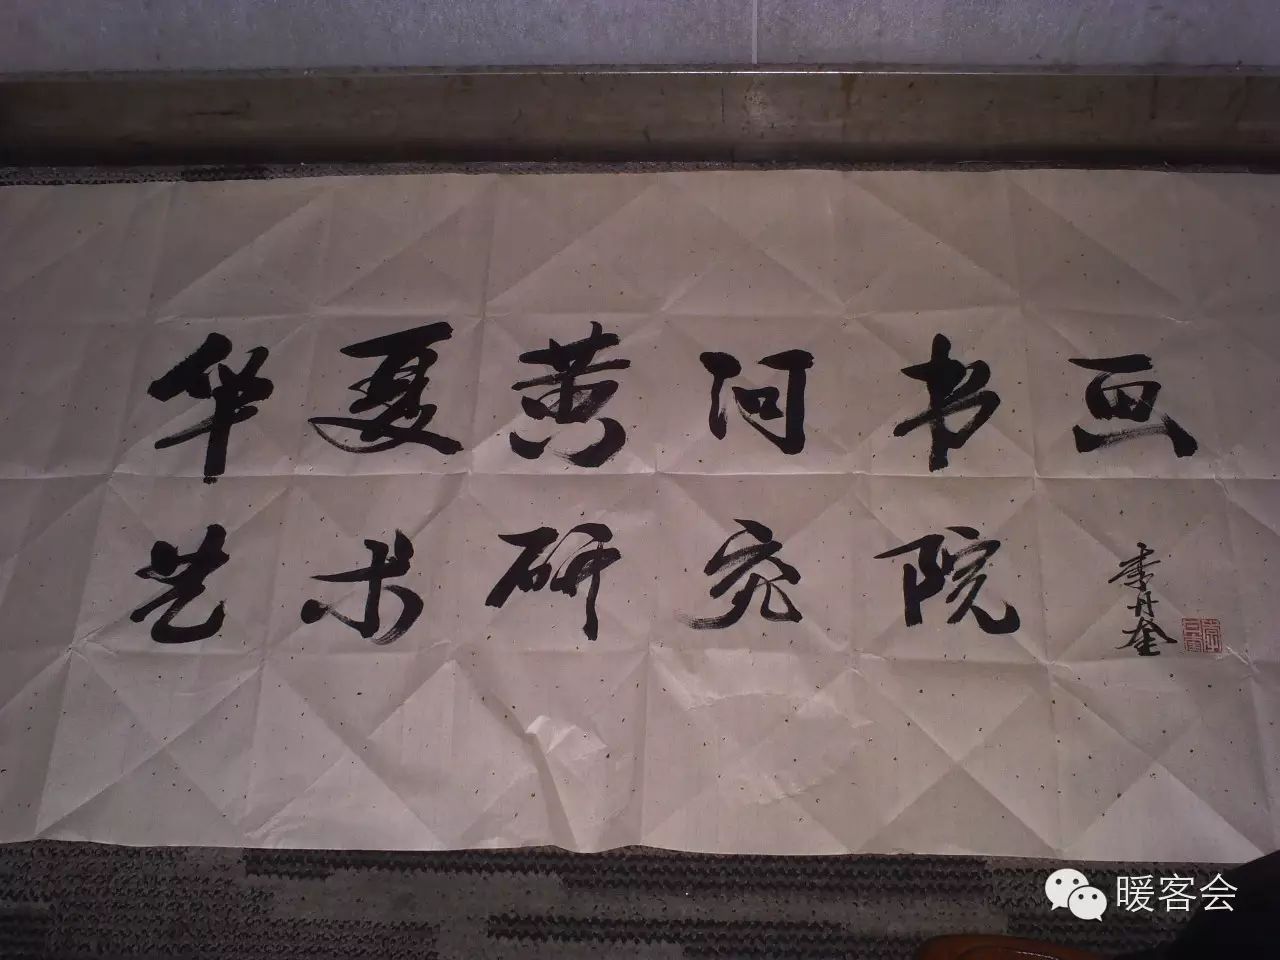 华夏黄河书画
艺术研究院
李丹奎
暖客会